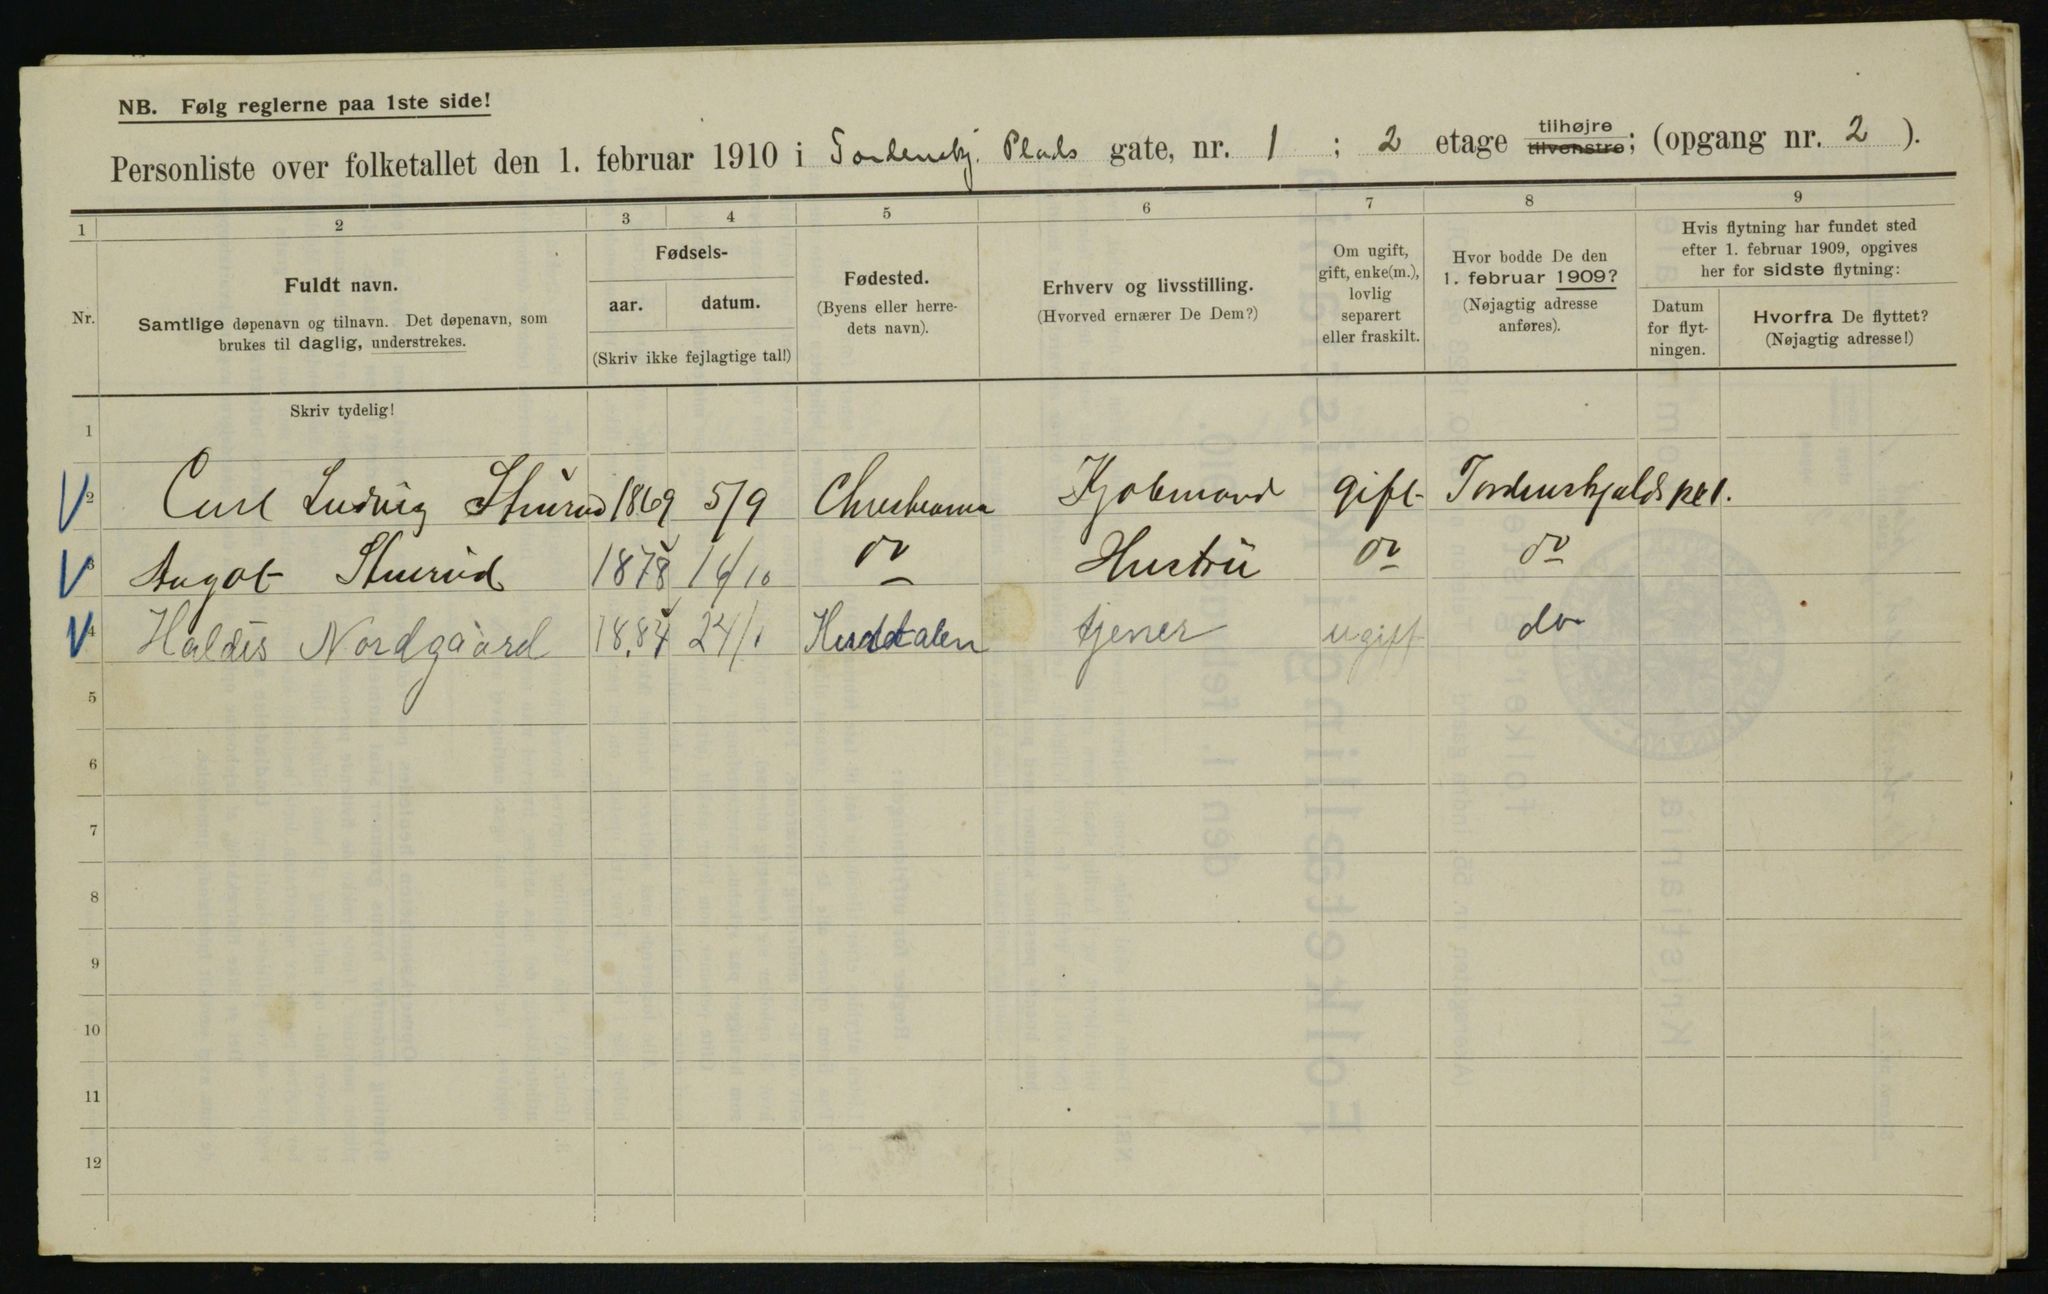 NB. Følg reglerne paa 1ste side!
Personliste over folketallet den 1. februar 1910 i Tordenskj. Plads gate, nr. 1 ; 2 etage tilhøjre tilvenstre; (opgang nr. 2 ).
1 2 3 4 5 6 7 8 9
Nr.
Fuldt navn.
Samtlige døpenavn og tilnavn. Det døpenavn, som
brukes til daglig, understrekes.
Fødsels-
aar. datum.
(Skriv ikke fejlagtige tal!)
Fødested.
(Byens eller herre-
dets navn).
Erhverv og livsstilling.
(Hvorved ernærer De Dem?)
Om ugift,
gift, enke(m.),
lovlig
separert
eller fraskilt.
Hvor bodde De den
1. februar 1909?
(Nøjagtig adresse
anføres).
Hvis flytning har fundet sted
efter 1. februar 1909, opgives
her for sidste flytning:
Datum
for flyt-
ningen.
Hvorfra De flyttet?
(Nøjagtig adresse!)
Skriv tydelig!
1
2 Carl Ludvig Sturud 1869 5/9 Christiania Kjøbmand gift Tordenskjolds pl 1.
3 Aagot Sturud 1878 16/10 do Hustru do do
4 Haldis Nordgaard 1884 24/1 Hurdalen tjener ugift do
5
6
7
8
9
10
11
12